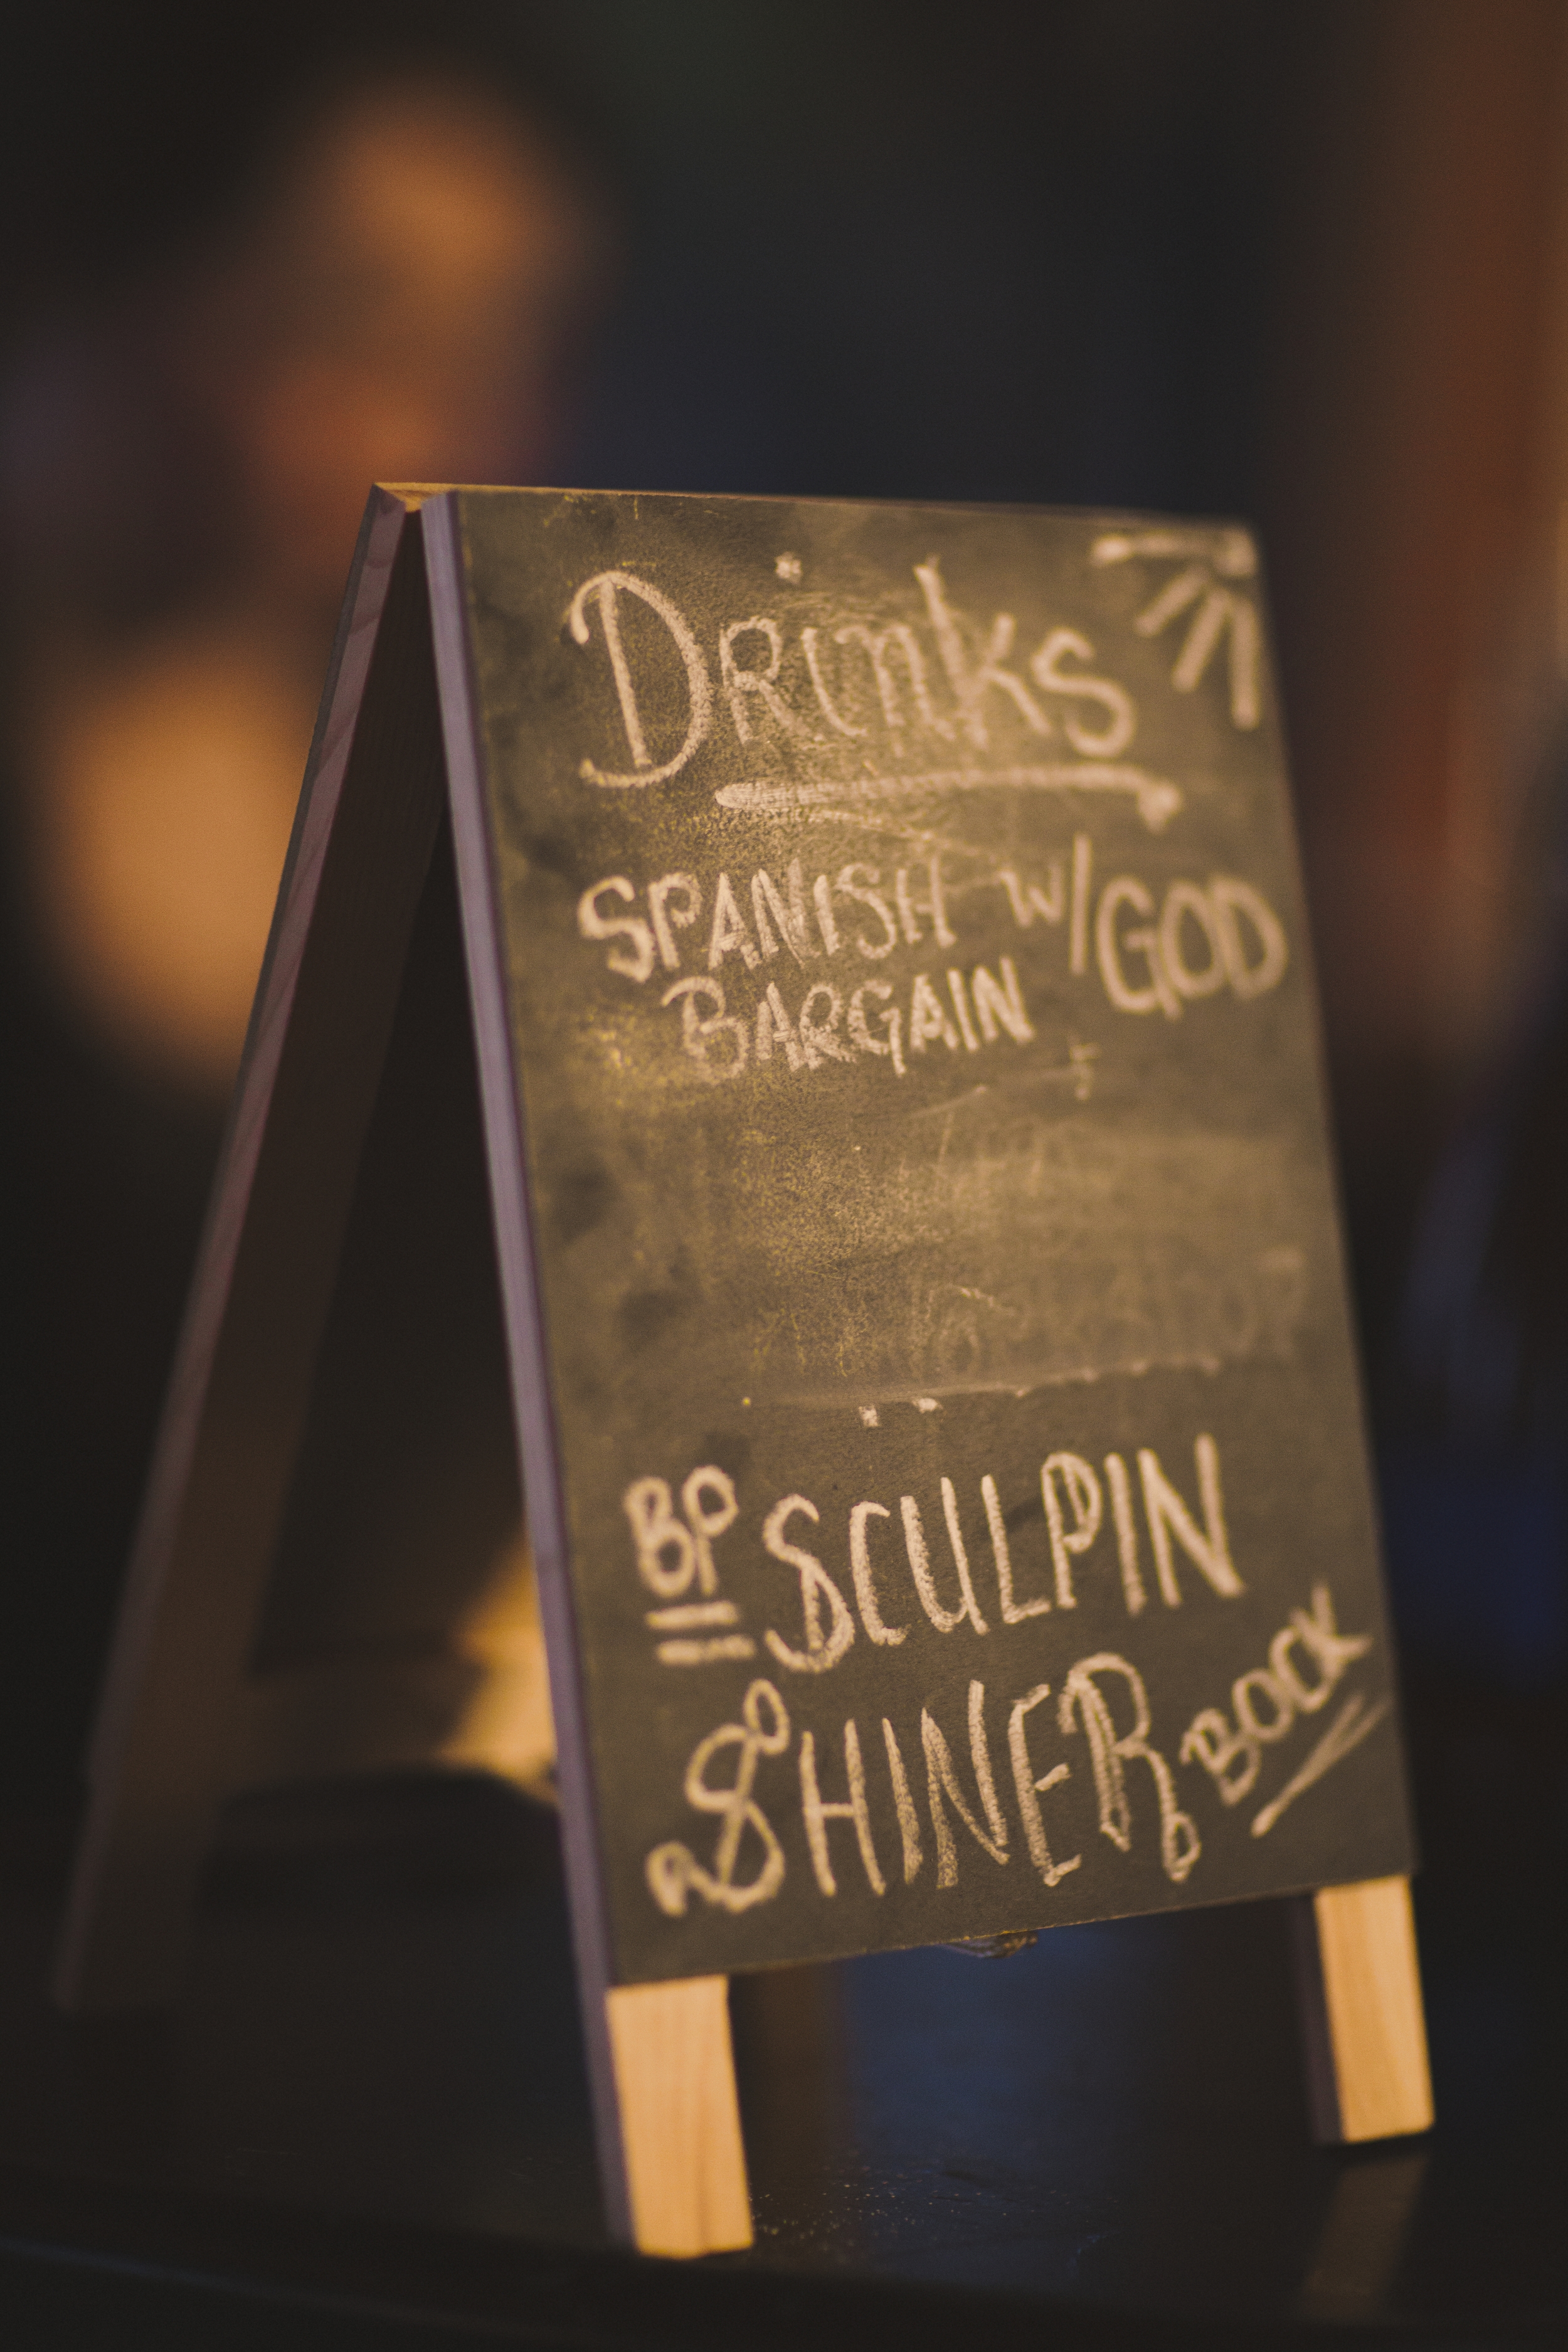 Drinks
SPANISH W/GOD
BARGAIN
BP SCULPIN
SHINER BOCK